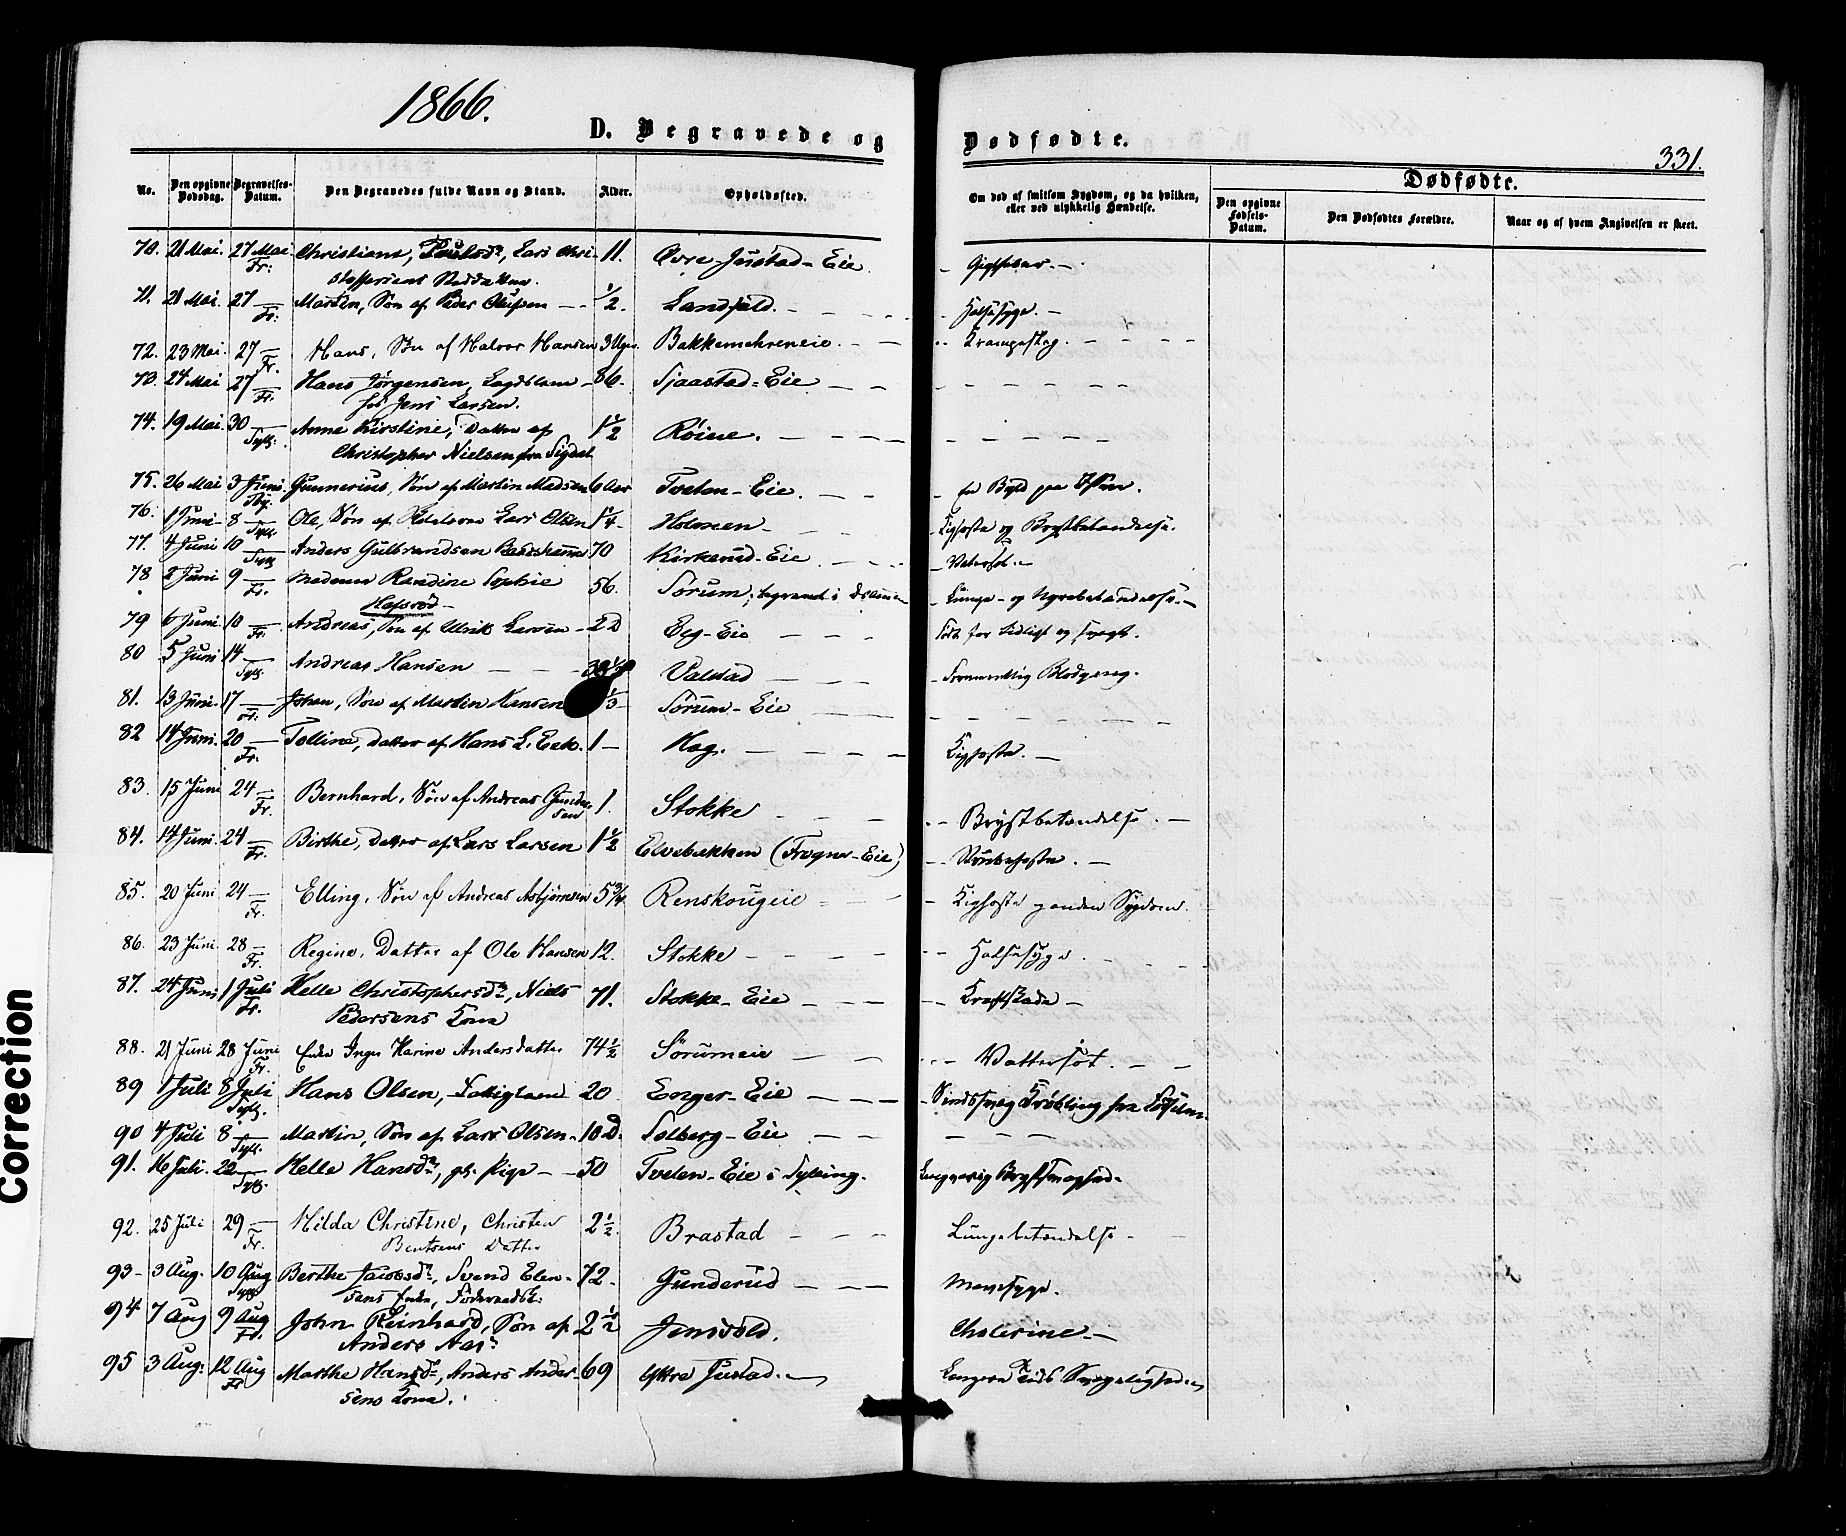 1866.
D. Begravede og
Dødfødte.
331.
No.
Den opgivne Dødsdag.
Begravelses-Datum.
Den Begravedes fulde Navn og Stand.
Alder.
Opholdssted.
Om død af smitsom Sygdom, og da hvilken, eller ved ulykkelig Hændelse.
Dødfødte.
Den opgivne Fødsels-Datum.
Den Dødfødtes Forældre.
Naar og af hvem Angivelsen er skeet.
70. 21 Mai. 27 Mai. Christiane, Lars Chri- 11. Øvre Justad-Eie.
Fr. stoffersens Steddatter.
71. 21 Mai. 27 — Martin, Søn af Peder Olufsen — ½. Landfald. Halssyge.
Fr.
72. 23 Mai. 27 — Hans, Søn af Halvor Hansen 3 Uger. Bakkemehreneie. Krampeslag.
Fr.
73. 24 Mai 27 — Hans Jørgensen, Lægdslem 86. Sjaastad-Eie
Fr. hos Jens Larsen.
74. 19 Mai. 30 — Anne Kirstine, Datter af 1½ Røine.
Sylg. Christopher Nielsen fra Sigdal
75. 26 Mai 3 Juni. Gunnerius, Søn af Martin Madsen 6 Aar Tveten-Eie. En Byld paa
76. 1 Juni 8 — Ole, Søn af Lars Olsen 1¼ Holmen Kighoste og Brystbetændelse.
77. 4 Juni 10 — Anders Gulbrandsen 70 Kirkerud-Eie Vatersot.
78 2 Juni 9 — Madame Randine Sophie 56. Sørum, begravet i Drammen Lunge- og Nyrebetændelse.
Fr. Hafsrød
79 6 Juni. 10 — Andreas, Søn af Ulrik Larsen 2 D Eeg-Eie Født for tidligt og svagt.
Fr.
80 5 Juni 14 — Andreas Hansen Valstad Blodgang.
81. 13 Juni. 17 — Johan, Søn af Martin Hansen ⅓ Sørum-Eie
Fr.
82 14 Juni. 20 — Tolline, Datter af Hans L. Eek. 1 — Hag. Kighoste.
Fr.
83. 15 Juni 24 — Bernhard, Søn af Andreas Gunder- 1. Stokke Brystbetændelse.
Fr. sen
84. 14 Juni. 24 — Birthe, Datter af Lars Larsen 1½ Elvebakken (Frogner-Eie) Strubehoste.
Fr.
85. 20 Juni 24 — Elling, Søn af Andreas Asbjørnsen 5¾ Renskougeie Kighoste og anden Sygdom.
Fr.
86. 23 Juni. 28 — Regine, Datter af Ole Hansen 12. Stokke Halssyge.
Fr.
87. 24 Juni 1 Juli Helle Christophersdr, Niels 71. Stokke-Eie Kræftskade
Fr. Pedersens Kone
88. 21 Juni 28 Juni Enke Inger Karine Andersdatter 74½ Sørumeie Vattersot.
Fr.
89 1 Juli 8 Juli Hans Olsen, Fattiglem 20 Enger-Eie Sindssvag Krøbling fra Fødselen.
90 4 Juli 8 — Martin, Søn af Lars Olsen 10 D. Solberg-Eie
91. 16 Juli. 22 — Helle Hansdr, gl. Pige 50 Tveten-Eie i Sylling. Langvarig Brystsvaghed.
92. 25 Juli 29 — Hilda Christine, Christen 2½ Brastad Lungebetændelse
Fr. Bentsens Datter
93 3 Aug. 10 Aug Berthe Jacobsdr, Svend Elen- 72. Gunderud Mavesyge.
sens Enke, Føderaadsk.
94 7 Aug 9 Aug John Reinhard, Søn af 2½ Jensvold. Cholerine
Fr. Anders Aas.
95 3 Aug. 12 Aug Marthe Hansdr, Anders Ander- 69 Yttre Justad. Længere Tids Svagelighed
Fr sens Kone.
Correction